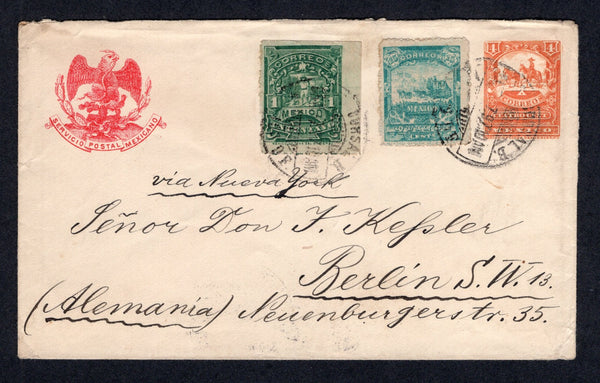 SERVICIO POSTAL MEXICANO
CORREOS
1 MEXICO 1
CORREOS
MEXICO
4 4
CORREOS
CENTAVOS
via Nueva York
Señor Don F. Keßler
Berlin S.W. 13.
(Alemania) Neuenburgerstr. 35.